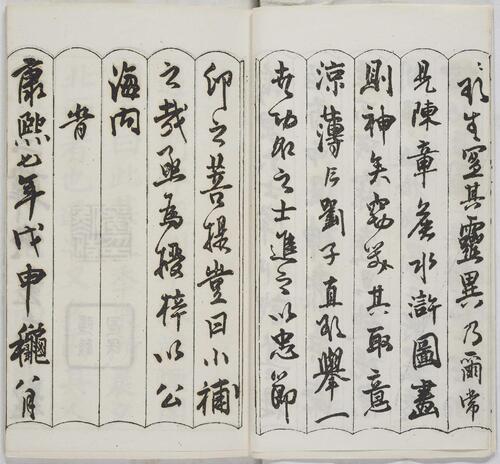 〻欲生宜其靈異乃爾常
見陳章侯水滸圖畫
則神矣竊其取意
涼薄劉子直欲舉一
世功名之士進之以忠節
仰之菩提豈曰小補
之哉亟為授梓以公
海内
旹
康熙七年戊申穐八月